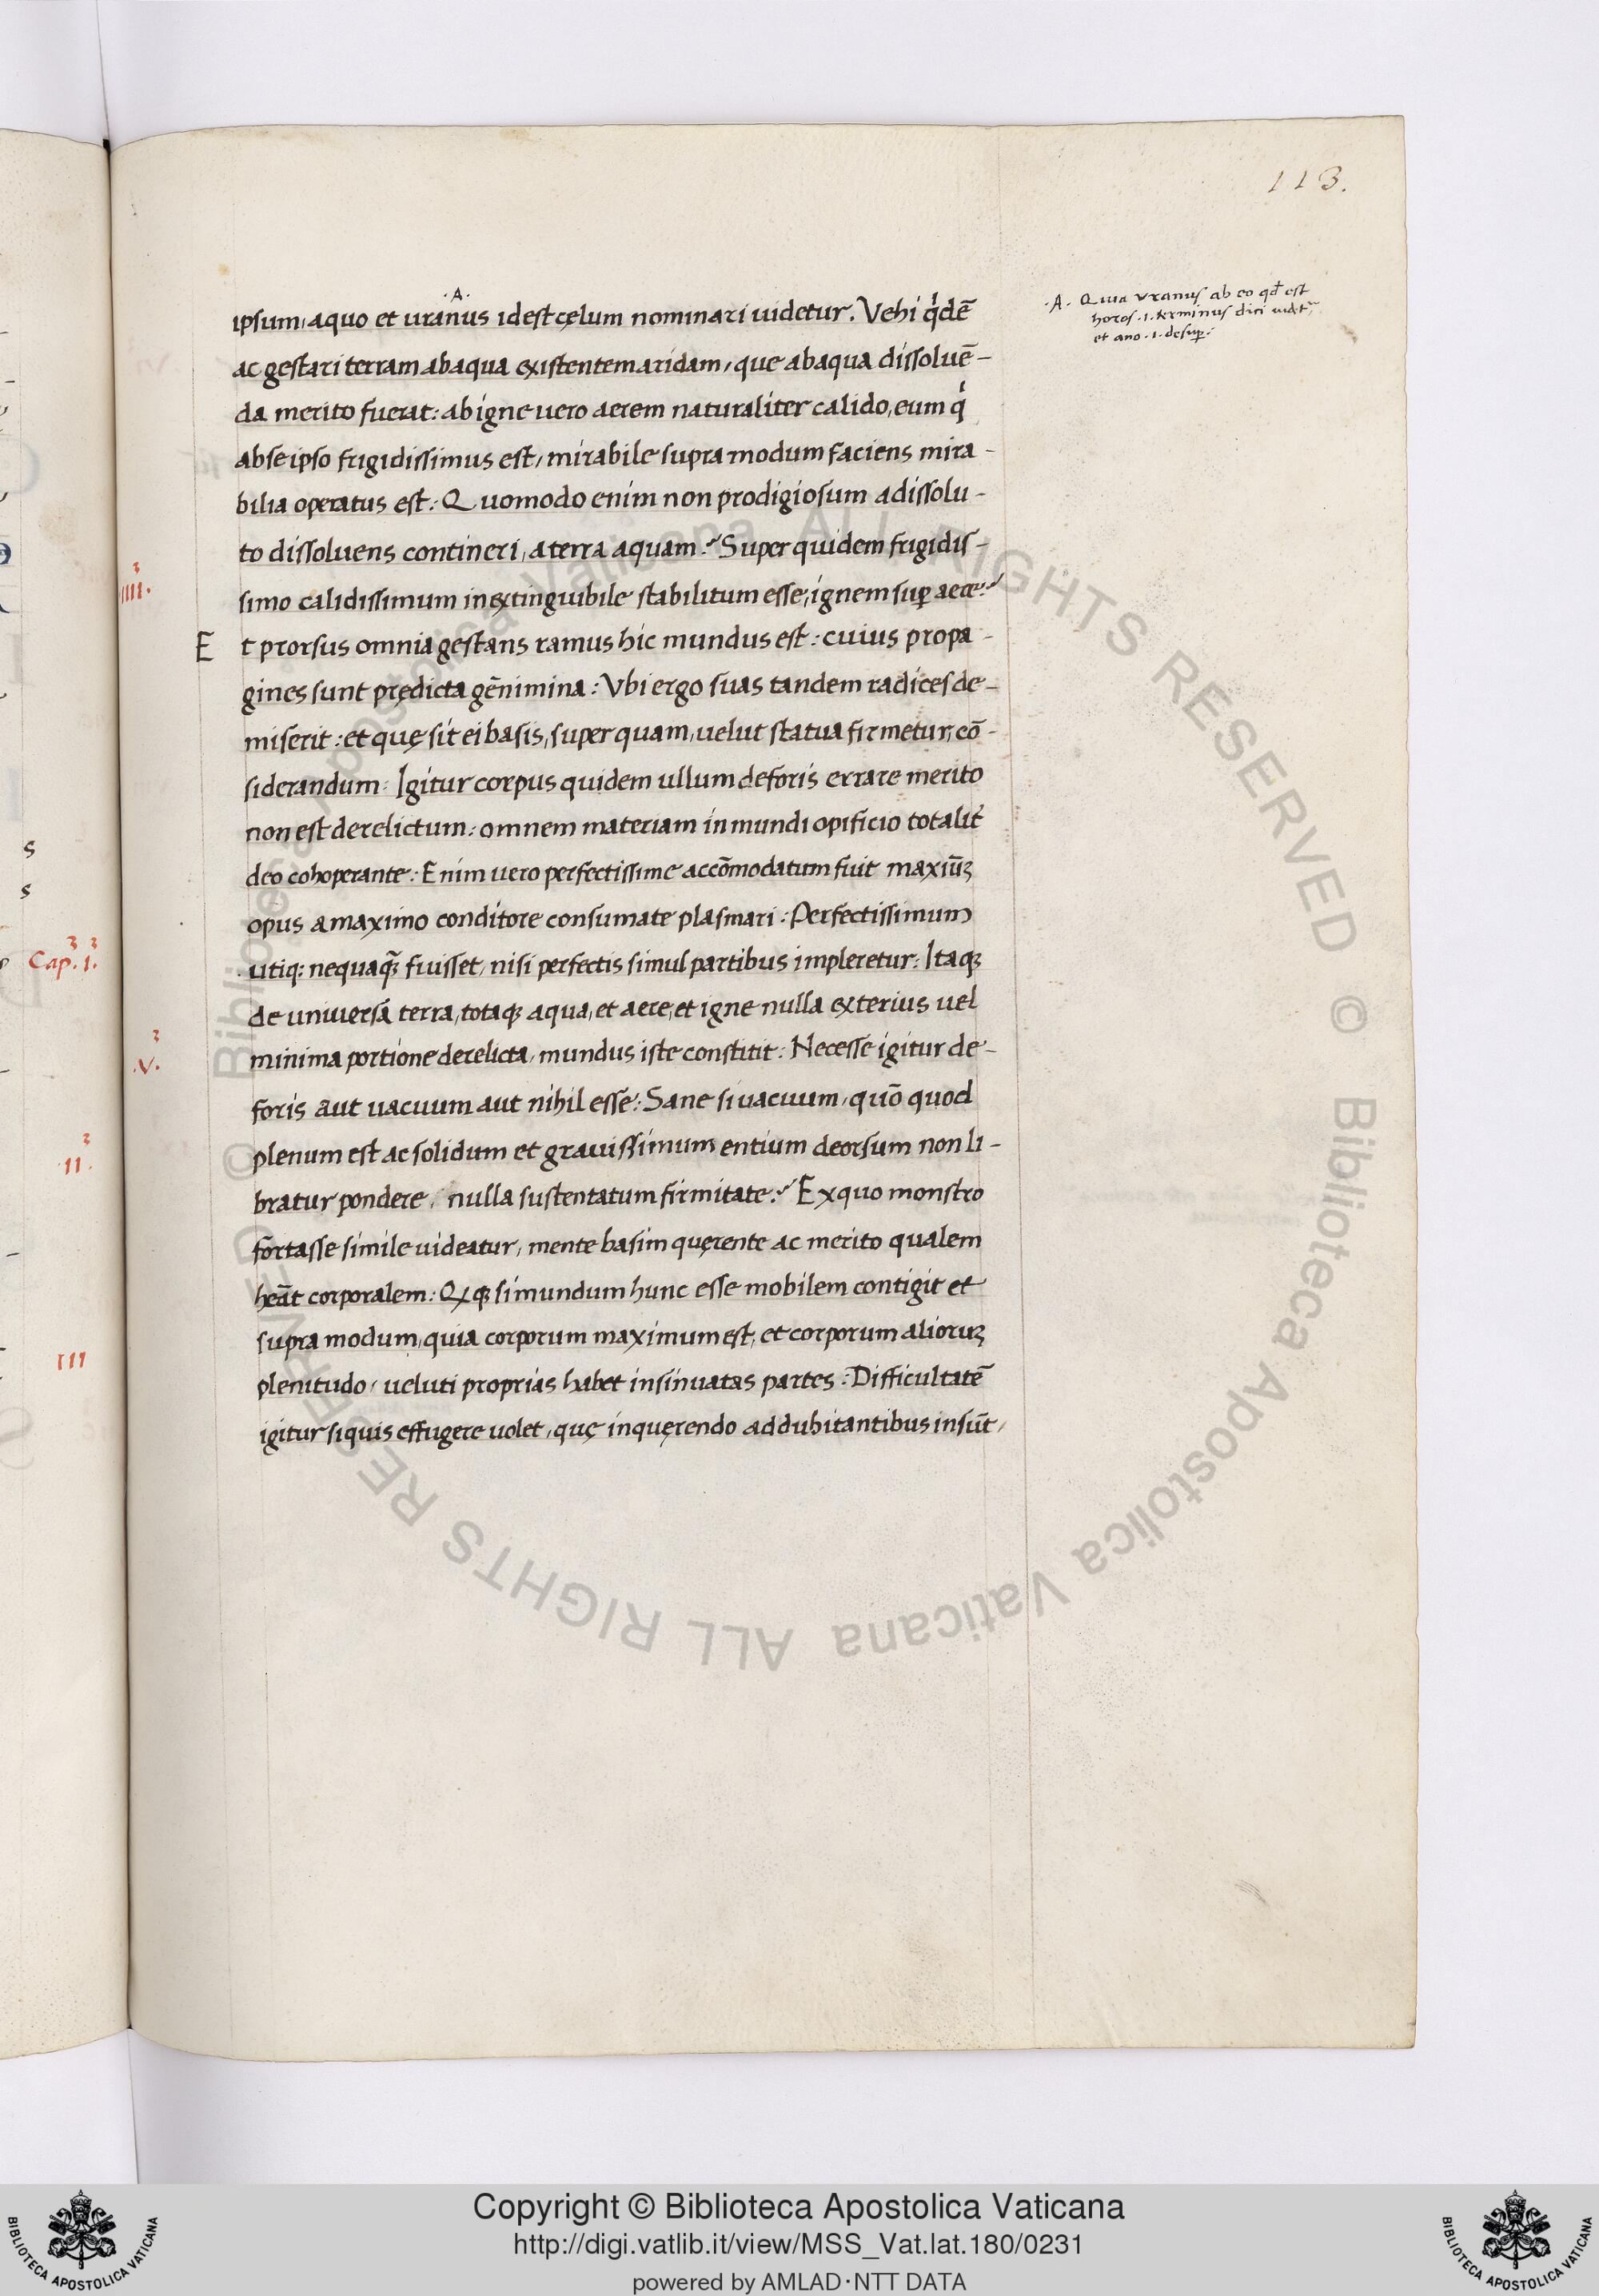 113.
.A.
ipsum, aquo et uranus idest cęlum nominari uidetur. Vehi q̇dē
.A. Quia uranus ab eo qđ est
horos .i. terminus dici uidet̃,
et ano .i. desuꝑ.
ac gestari terram abaqua existentem aridam, que abaqua dissoluē-
da merito fuerat: ab igne uero aerem naturaliter calido, eum q̇
abse ipso frigidissimus est, mirabile supra modum faciens mira-
bilia operatus est: Quomodo enim non prodigiosum a dissolu-
to dissoluens contineri, a terra aquam? Super quidem frigidis-
simo calidissimum inextinguibile stabilitum esse, ignem suꝑ aere?
IIII.
Et prorsus omnia gestans ramus hic mundus est: cuius propa-
gines sunt prędicta gēnimina: Vbi ergo suas tandem radices de-
miserit: et quę sit ei basis, super quam, uelut statua firmetur, cō-
siderandum: Igitur corpus quidem ullum deforis errare merito
non est derelictum: omnem materiam in mundi opificio totalit̛
deo cohoperante: Enim uero perfectissime accōmodatum fuit maxiūꝫ
opus a maximo conditore consumate plasmari: Perfectissimum
utiq: nequaq̃ꝫ fuisset, nisi perfectis simul partibus impleretur: Itaqꝫ
de uniuersa terra, totaqꝫ aqua, et aere, et igne nulla exterius uel
minima portione derelicta, mundus iste constitit: Necesse igitur de-
.V.
foris aut uacuum aut nihil esse: Sane si uacuum, quō quod
plenum est ac solidum et grauissimum entium deorsum non li-
bratur pondere, nulla sustentatum firmitate? Ex quo monstro
fortasse simile uideatur, mente basim quęrente ac merito qualem
heāt corporalem: Qꝫqꝫ si mundum hunc esse mobilem contigit et
supra modum, quia corporum maximum est, et corporum alioruꝫ
plenitudo, ueluti proprias habet insinuatas partes: Difficultatē
igitur si quis effugere uolet, quę inquęrendo addubitantibus insūt,
s
s
Cap. I.
II.
III
Copyright © Biblioteca Apostolica Vaticana
http://digi.vatlib.it/view/MSS_Vat.lat.180/0231
powered by AMLAD·NTT DATA
BIBLIOTECA APOSTOLICA VATICANA
BIBLIOTECA APOSTOLICA VATICANA
© Biblioteca Apostolica Vaticana ALL RIGHTS RESERVED © Biblioteca Apostolica Vaticana ALL RIGHTS RESERVED